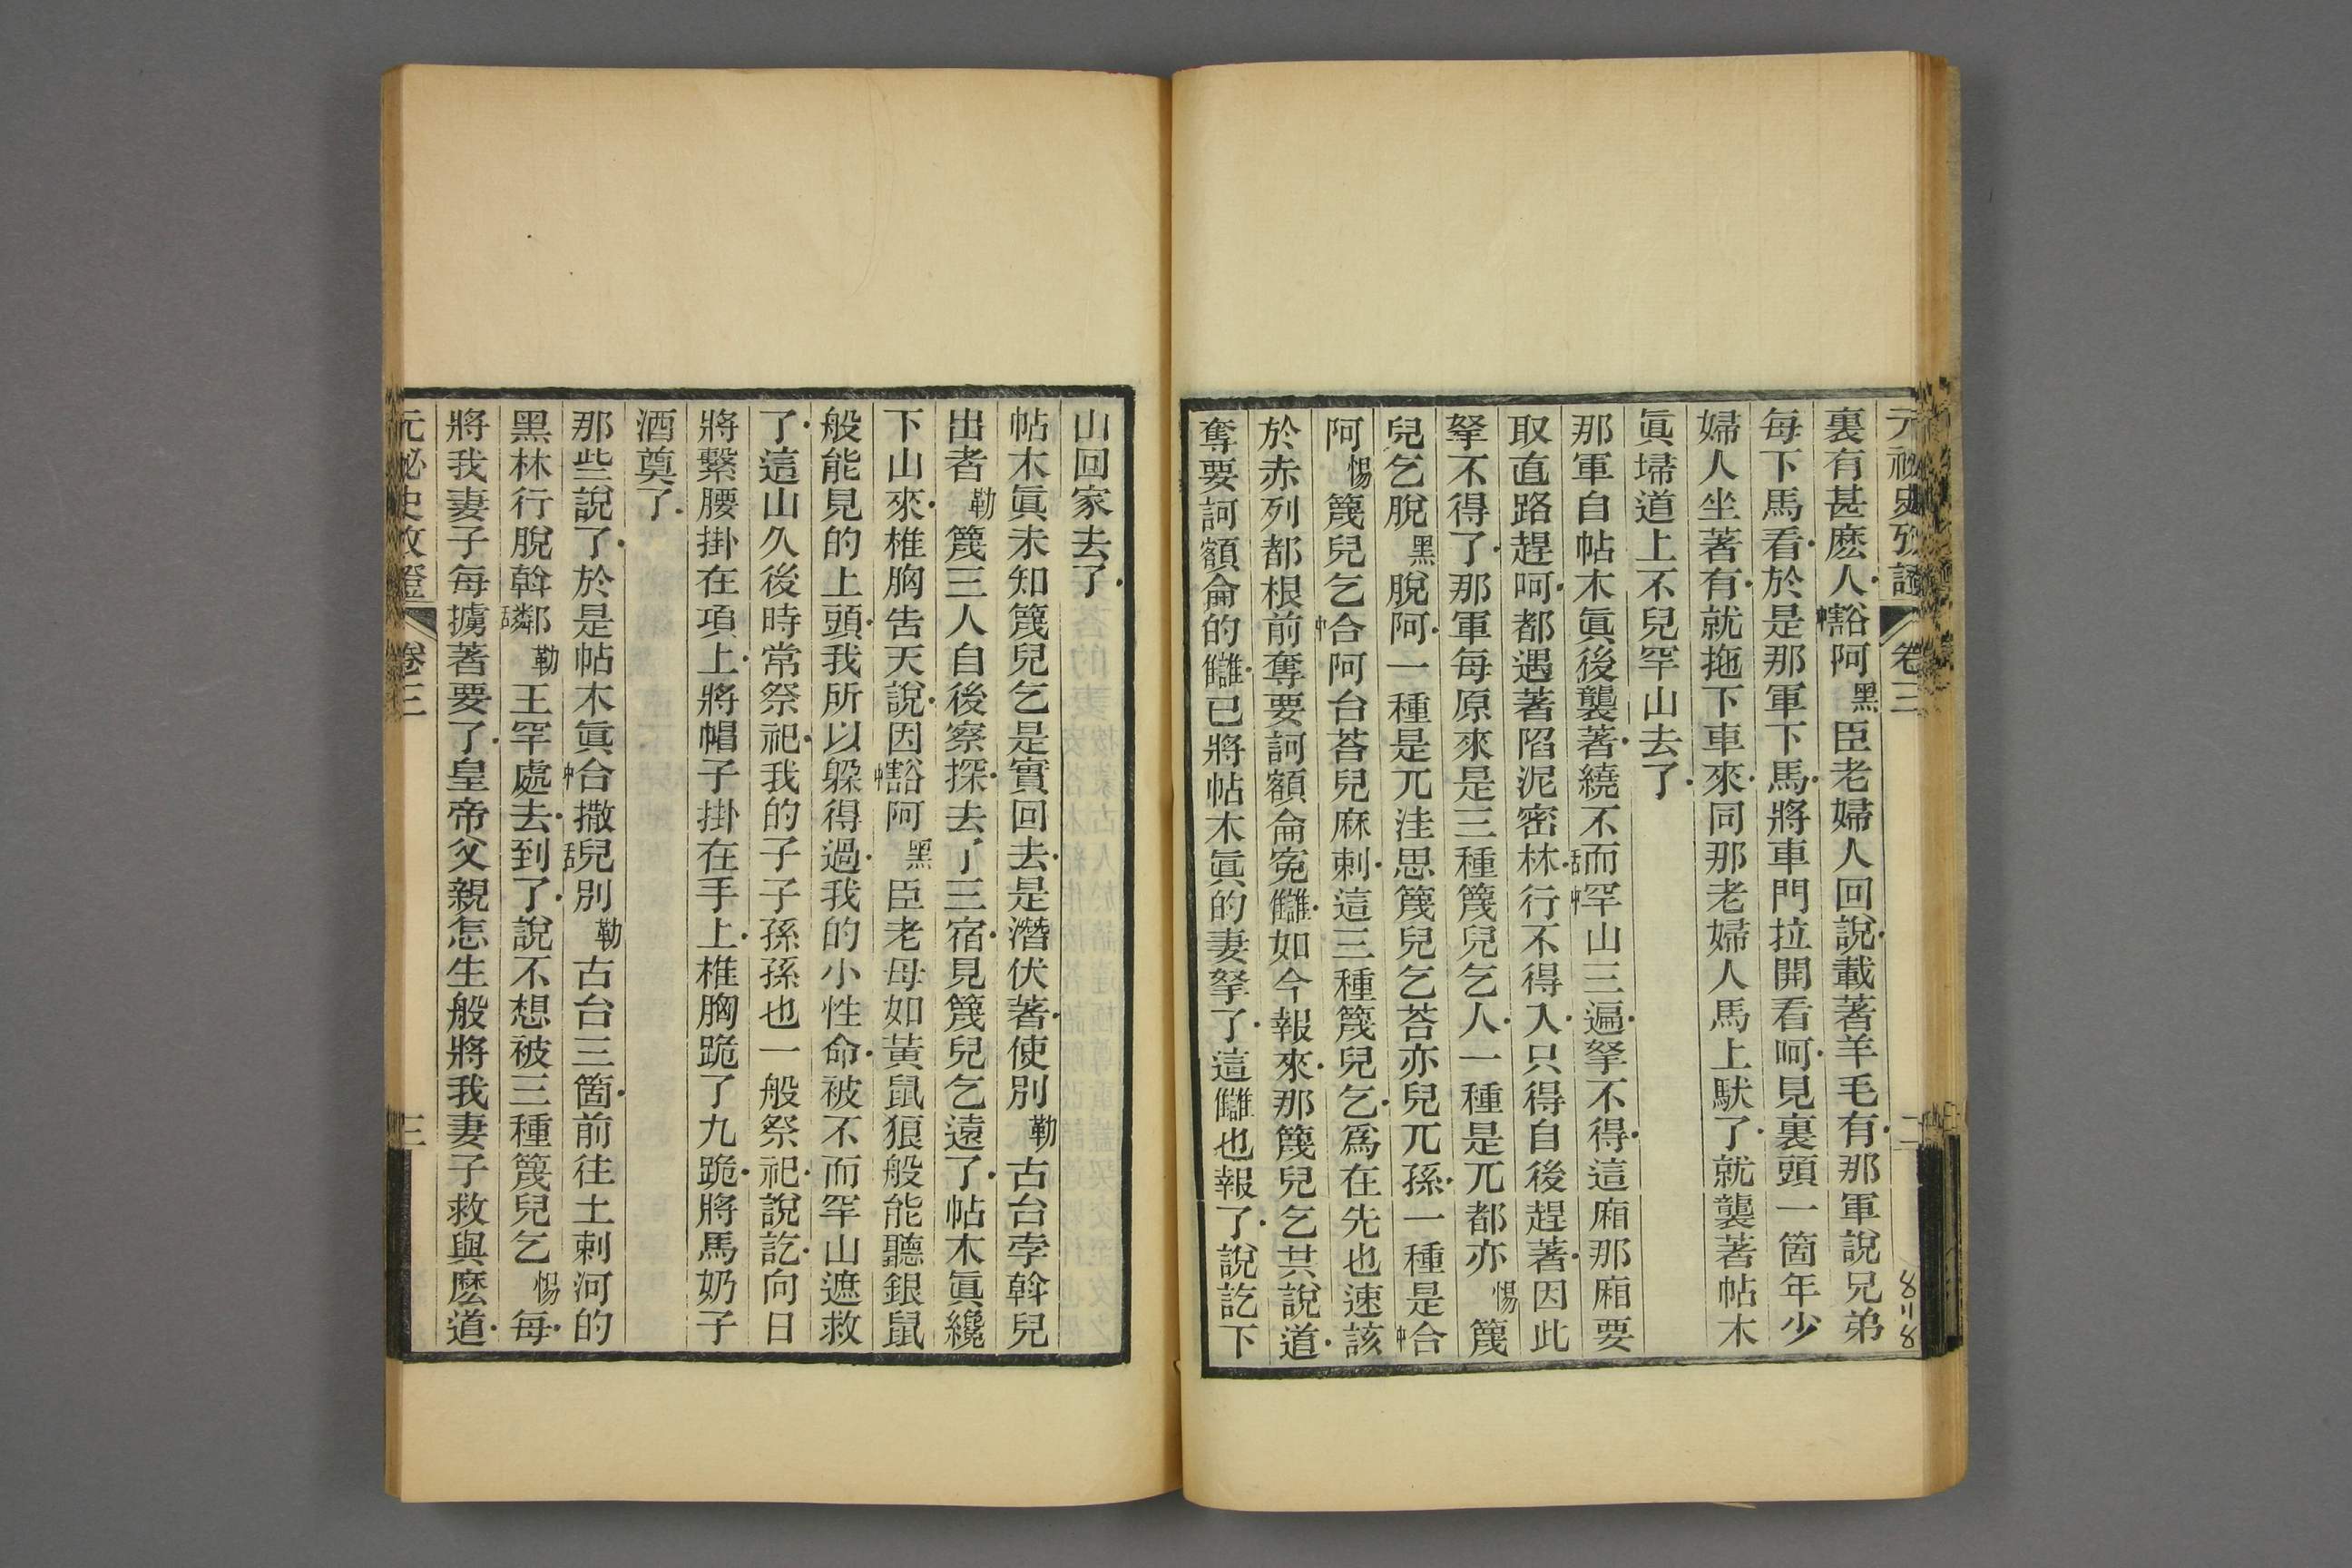 元祕史攷證 卷三 二
裏有甚麽人中豁阿黑臣老婦人回說載著羊毛有那軍說兄弟
每下馬看於是那軍下馬將車門拉開看呵見裏頭一箇年少
婦人坐著有就拖下車來同那老婦人馬上馱了就襲著帖木
眞埽道上不兒罕山去了
那軍自帖木眞後襲著繞不而舌中罕山三遍拏不得這廂那廂要
取直路趕呵都遇著陷泥密林行不得入只得自後趕著因此
拏不得了那軍每原來是三種篾兒乞人一種是兀都亦惕篾
兒乞脫黑脫阿一種是兀洼思篾兒乞荅亦兒兀孫一種是中合
阿惕篾兒乞中合阿台荅兒麻剌這三種篾兒乞爲在先也速該
於赤列都根前奪要訶額侖寃讎如今報來那篾兒乞共說道
奪要訶額侖的讎已將帖木眞的妻拏了這讎也報了說訖下
山回家去了
帖木眞未知篾兒乞是實回去是潛伏著使別勒古台孛斡兒
出者勒篾三人自後察探去了三宿見篾兒乞遠了帖木眞纔
下山來椎胸告天說因中豁阿黑臣老母如黃鼠狼般能聽銀鼠
般能見的上頭我所以躱得過我的小性命被不而罕山遮救
了這山久後時常祭祀我的子子孫孫也一般祭祀說訖向日
將繫腰掛在項上將帽子掛在手上椎胸跪了九跪將馬奶子
酒奠了
那些說了於是帖木眞中合撒舌兒別勒古台三箇前往土剌河的
黑林行脫斡舌鄰勒王罕處去到了說不想被三種篾兒乞惕每
將我妻子每擄著要了皇帝父親怎生般將我妻子救與麽道
元祕史攷證 卷三 三
8118